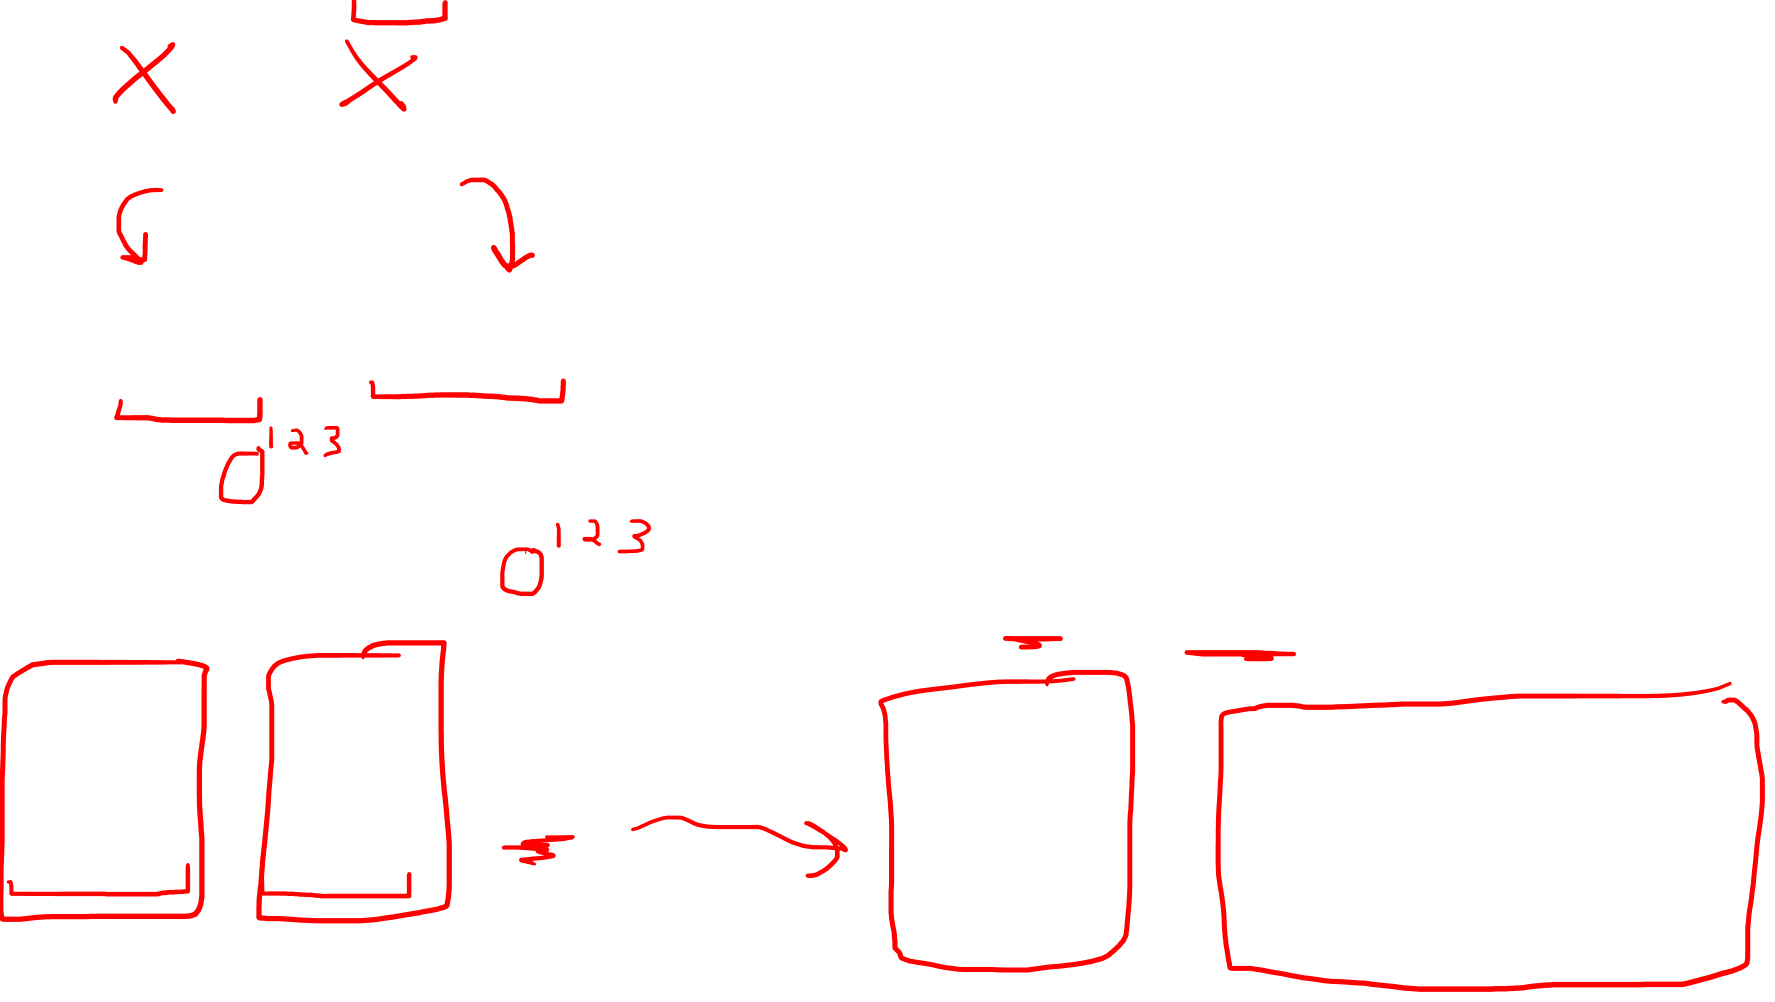 X X
0 1 2 3
0 1 2 3